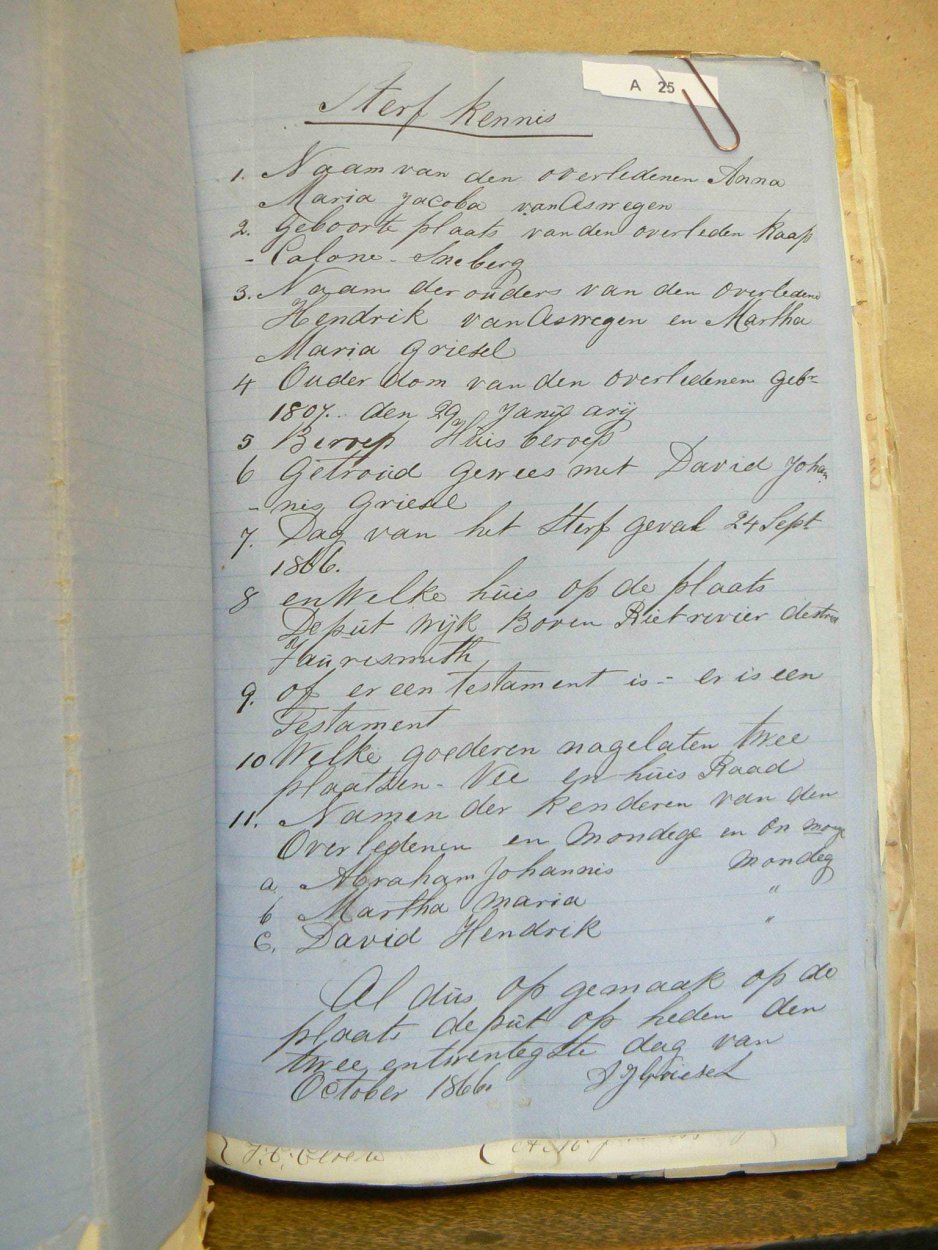 A 25
Sterf kennis
1. Naam van den overledenen Anna
Maria Jacoba van Aswegen
2. Geboorte plaats van den overleden Kaap
- Colone - Sneberg
3. Naam der ouders van den overledene
Hendrik van Aswegen en Martha
Maria Griesel
4 Ouder dom van den overledenen geb-
1807. den 29 Janu arij
5 Beroep Huis beroep
6 Getroud gewees met David Johan
- nis Griesel
7. Dag van het Sterf geval 24 Sept
1866.
8 en Welke huis op de plaats
De put wijk Boven Rietrevier destrea
Fauresmith
9. of er een testament is - er is een
Testament
10 Welke goederen nagelaten twee
plaatsen - Vee en huis Raad
11. Namen der kenderen van den
Overledenen en Mondege en on
a. Abraham Johannis mondeg
b Martha Maria "
c. David Hendrik "
Al dus op gemaak op de
plaats de put op heden den
twee entwentegste dag van
October 1866. D J Griesel